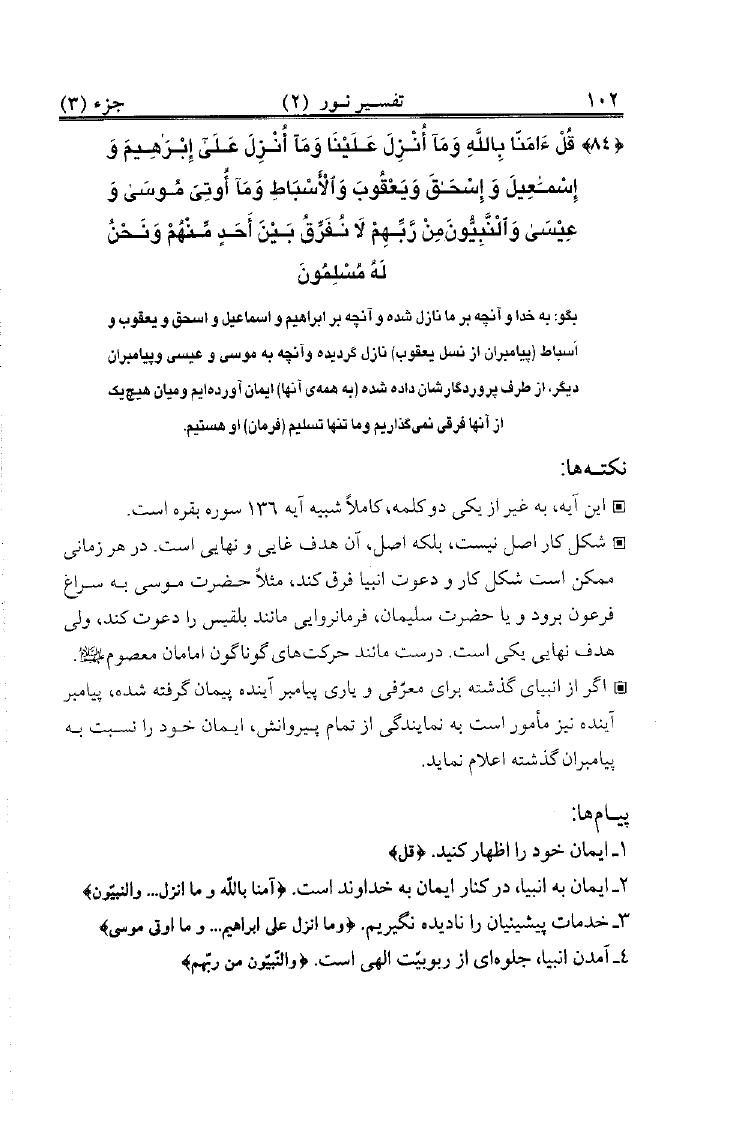 ۱۰۲ تفسیر نور (۲) جزء (۳)
﴿۸٤﴾ قُلْ ءَامَنَّا بِاللَّهِ وَمَآ أُنْزِلَ عَلَيْنَا وَمَآ أُنْزِلَ عَلَىٰٓ إِبْرَٰهِيمَ وَ
إِسْمَٰعِيلَ وَ إِسْحَٰقَ وَيَعْقُوبَ وَٱلْأَسْبَاطِ وَمَآ أُوتِىَ مُوسَىٰ وَ
عِيْسَىٰ وَٱلْنَّبِيُّونَ مِنْ رَّبِّهِمْ لَا نُفَرِّقُ بَيْنَ أَحَدٍ مِّنْهُمْ وَنَحْنُ
لَهُ مُسْلِمُونَ
بگو: به خدا و آنچه بر ما نازل شده و آنچه بر ابراهیم و اسماعیل و اسحق و یعقوب و
أسباط (پیامبران از نسل یعقوب) نازل گردیده وآنچه به موسی و عیسی وپیامبران
دیگر، از طرف پروردگارشان داده شده (به همه‌ی آنها) ایمان آورده‌ایم ومیان هیچ‌یک
از آنها فرقی نمی‌گذاریم وما تنها تسلیم (فرمان) او هستیم.
نکته‌ها:
▣ این آیه، به غیر از یکی دو کلمه، کاملاً شبیه آیه ۱۳٦ سوره بقره است.
▣ شکل کار اصل نیست، بلکه اصل، آن هدف غایی و نهایی است. در هر زمانی
ممکن است شکل کار و دعوت انبیا فرق کند، مثلاً حضرت موسی به سراغ
فرعون برود و یا حضرت سلیمان، فرمانروایی مانند بلقیس را دعوت کند، ولی
هدف نهایی یکی است. درست مانند حرکت‌های گوناگون امامان معصوم علیهم‌السلام.
▣ اگر از انبیای گذشته برای معرّفی و یاری پیامبر آینده پیمان گرفته شده، پیامبر
آینده نیز مأمور است به نمایندگی از تمام پیروانش، ایمان خود را نسبت به
پیامبران گذشته اعلام نماید.
پیام‌ها:
۱ـ ایمان خود را اظهار کنید. ﴿قل﴾
۲ـ ایمان به انبیا، در کنار ایمان به خداوند است. ﴿آمنا بالله و ما انزل... والنبیّون﴾
۳ـ خدمات پیشینیان را نادیده نگیریم. ﴿وما انزل علی ابراهیم... و ما اوتی موسی﴾
٤ـ آمدن انبیا، جلوه‌ای از ربوبیّت الهی است. ﴿والنّبیّون من ربّهم﴾